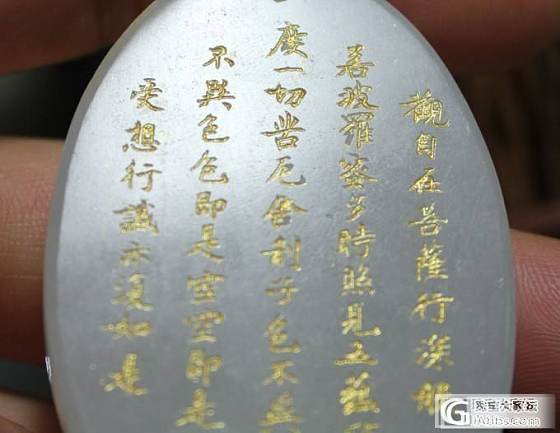 觀自在菩薩行深般
若波羅蜜多時照見五蘊
度一切苦厄舍利子色不異
不異色色即是空空即是
受想行識亦復如是